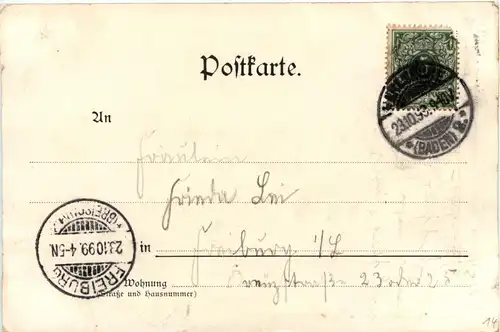 Postkarte.
KARLSRUHE
23.10.99.
*(BADEN) 2.*
An
Fräulein
Frieda
FREIBURG
(BREISGAU)
23.10.99. 4-5N.
in Freiburg
Wohnung
(Straße und Hausnummer)
23 oder 25
14